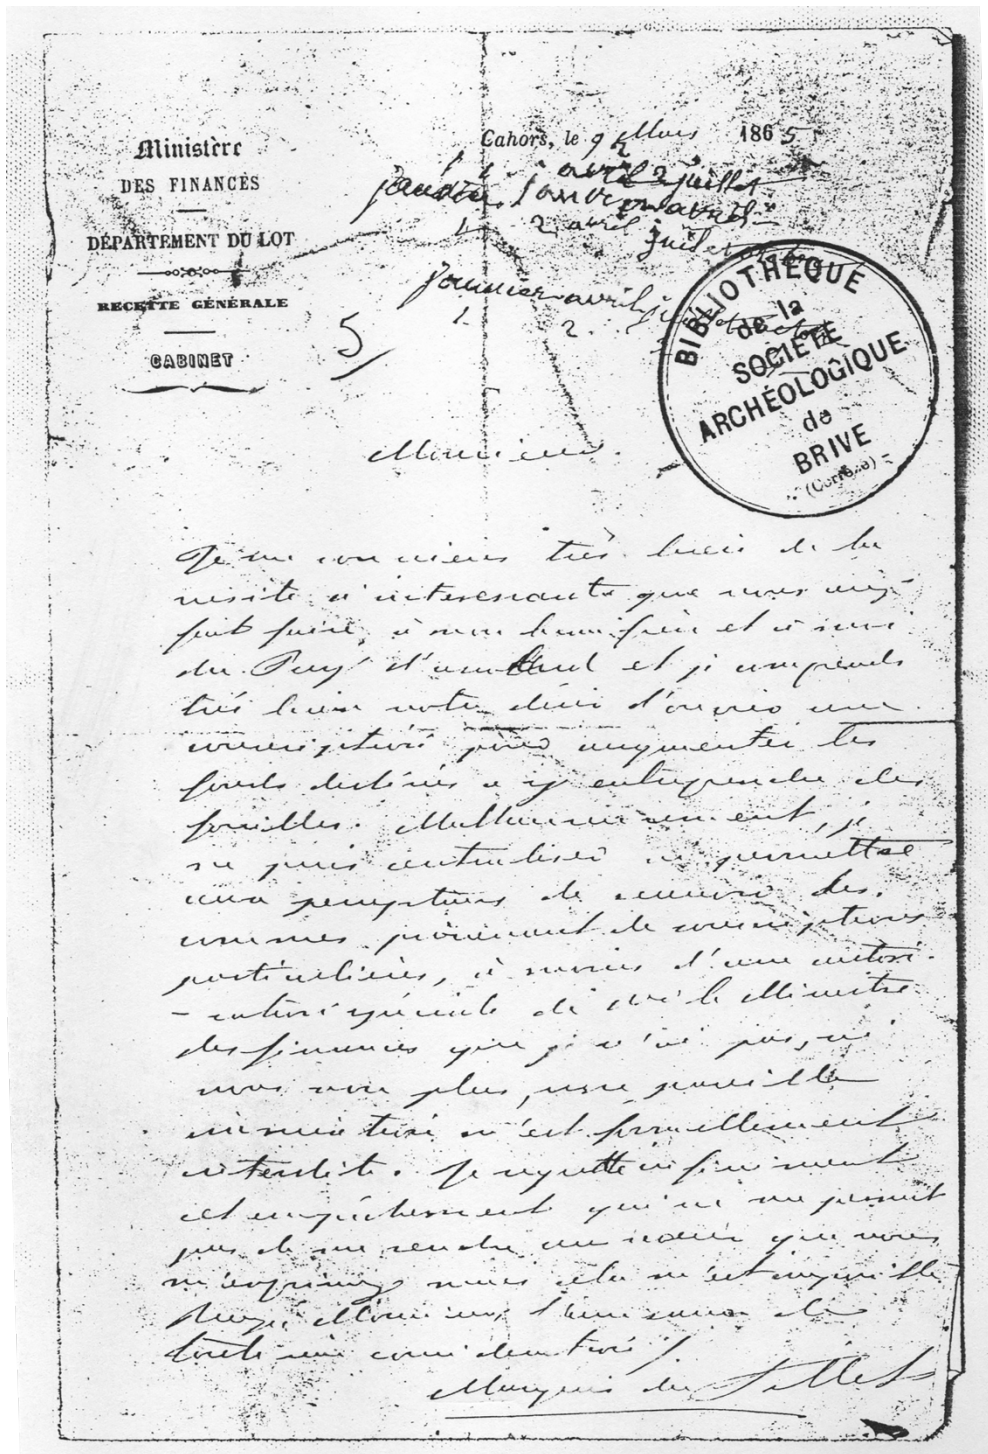 Ministère
DES FINANCES
DÉPARTEMENT DU LOT
RECETTE GÉNÉRALE
CABINET
Cahors, le 9 Mars 1865
avril 2 juillet
janvier avril
2 avril juillet
janvier avril
1. 2.
5
BIBLIOTHÈQUE
de la
SOCIÉTÉ
ARCHÉOLOGIQUE
de
BRIVE
(Corrèze)
Monsieur.
Je me souviens très bien de la
visite si intéressante que vous m'avez
fait faire, à mon beau frère et à moi
du Puy d'ussolud et je comprends
très bien votre désir d'ouvrir une
souscription pour augmenter les
fonds destinés a y entreprendre des
fouilles. Malheureusement, je
ne puis centraliser ni permettre
aux percepteurs de recevoir des
sommes provenant de souscriptions
particulières, à moins d'une autori-
-sation spéciale de Mr le Ministre
des finances que je n'ai pas, ni
vous non plus, une pareille
immixtion m'est formellement
interdite. Je regrette infiniment
cet empêchement qui ne me permet
pas de me rendre au désir que vous
m'exprimez mais cela m'est impossible
Recevez Monsieur, l'assurance de
toute ma considération
Marquis du Tillet